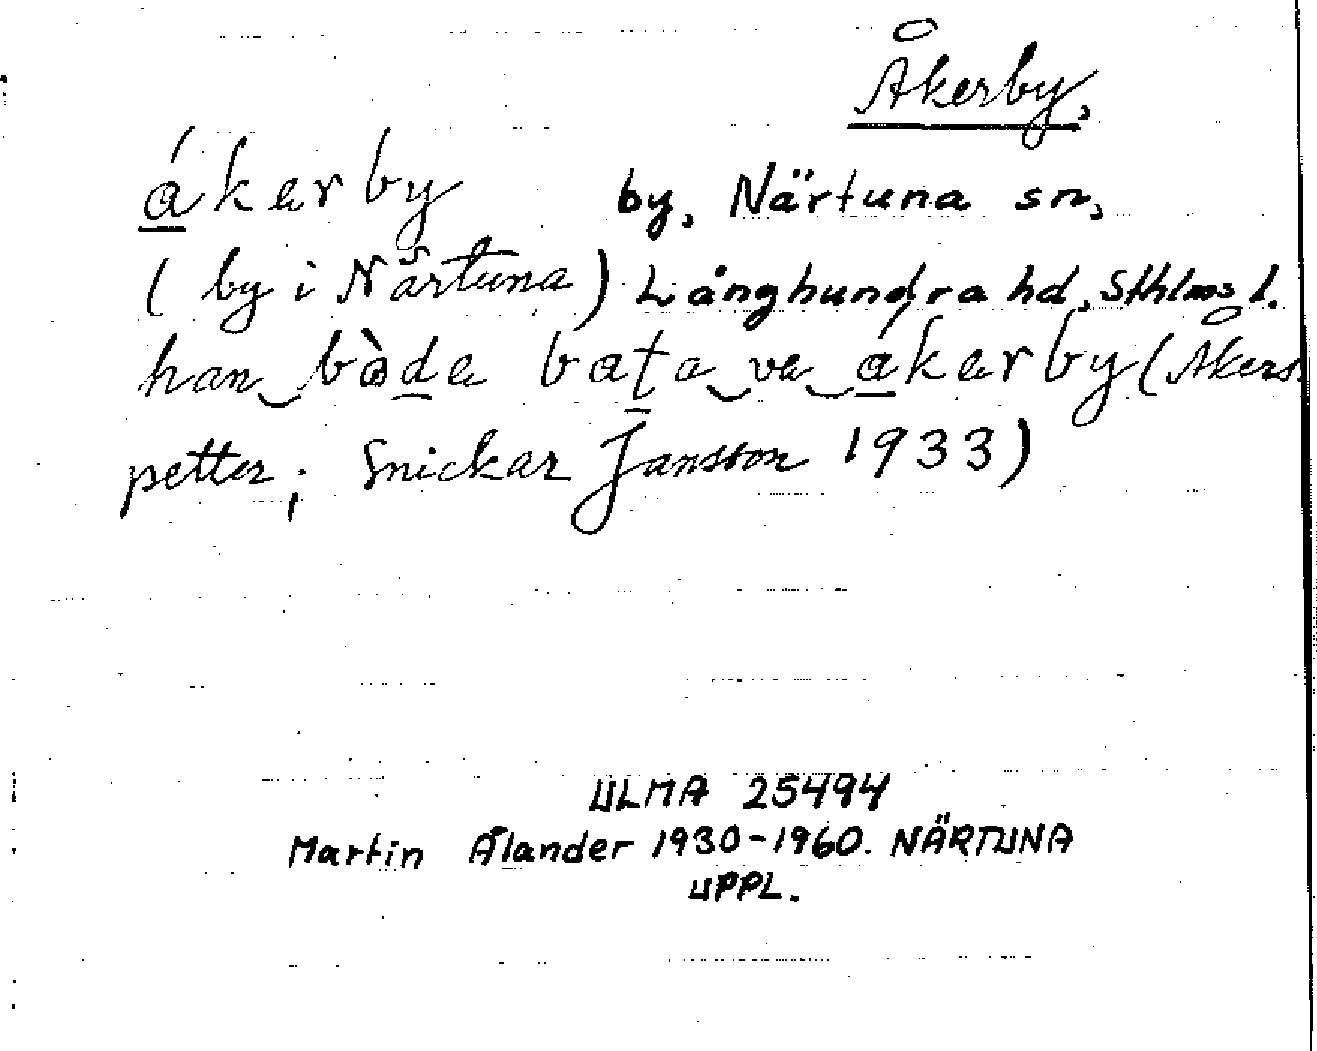 Åkerby,
ákerby by, Närtuna sn,
(by i Närtuna) Långhundra hd, Sthlms l.
han bàde bata va ákerby (Åkers
petter; Snickar Jansson 1933)
ULMA 25494
Martin Ålander 1930-1960. NÄRTUNA
UPPL.